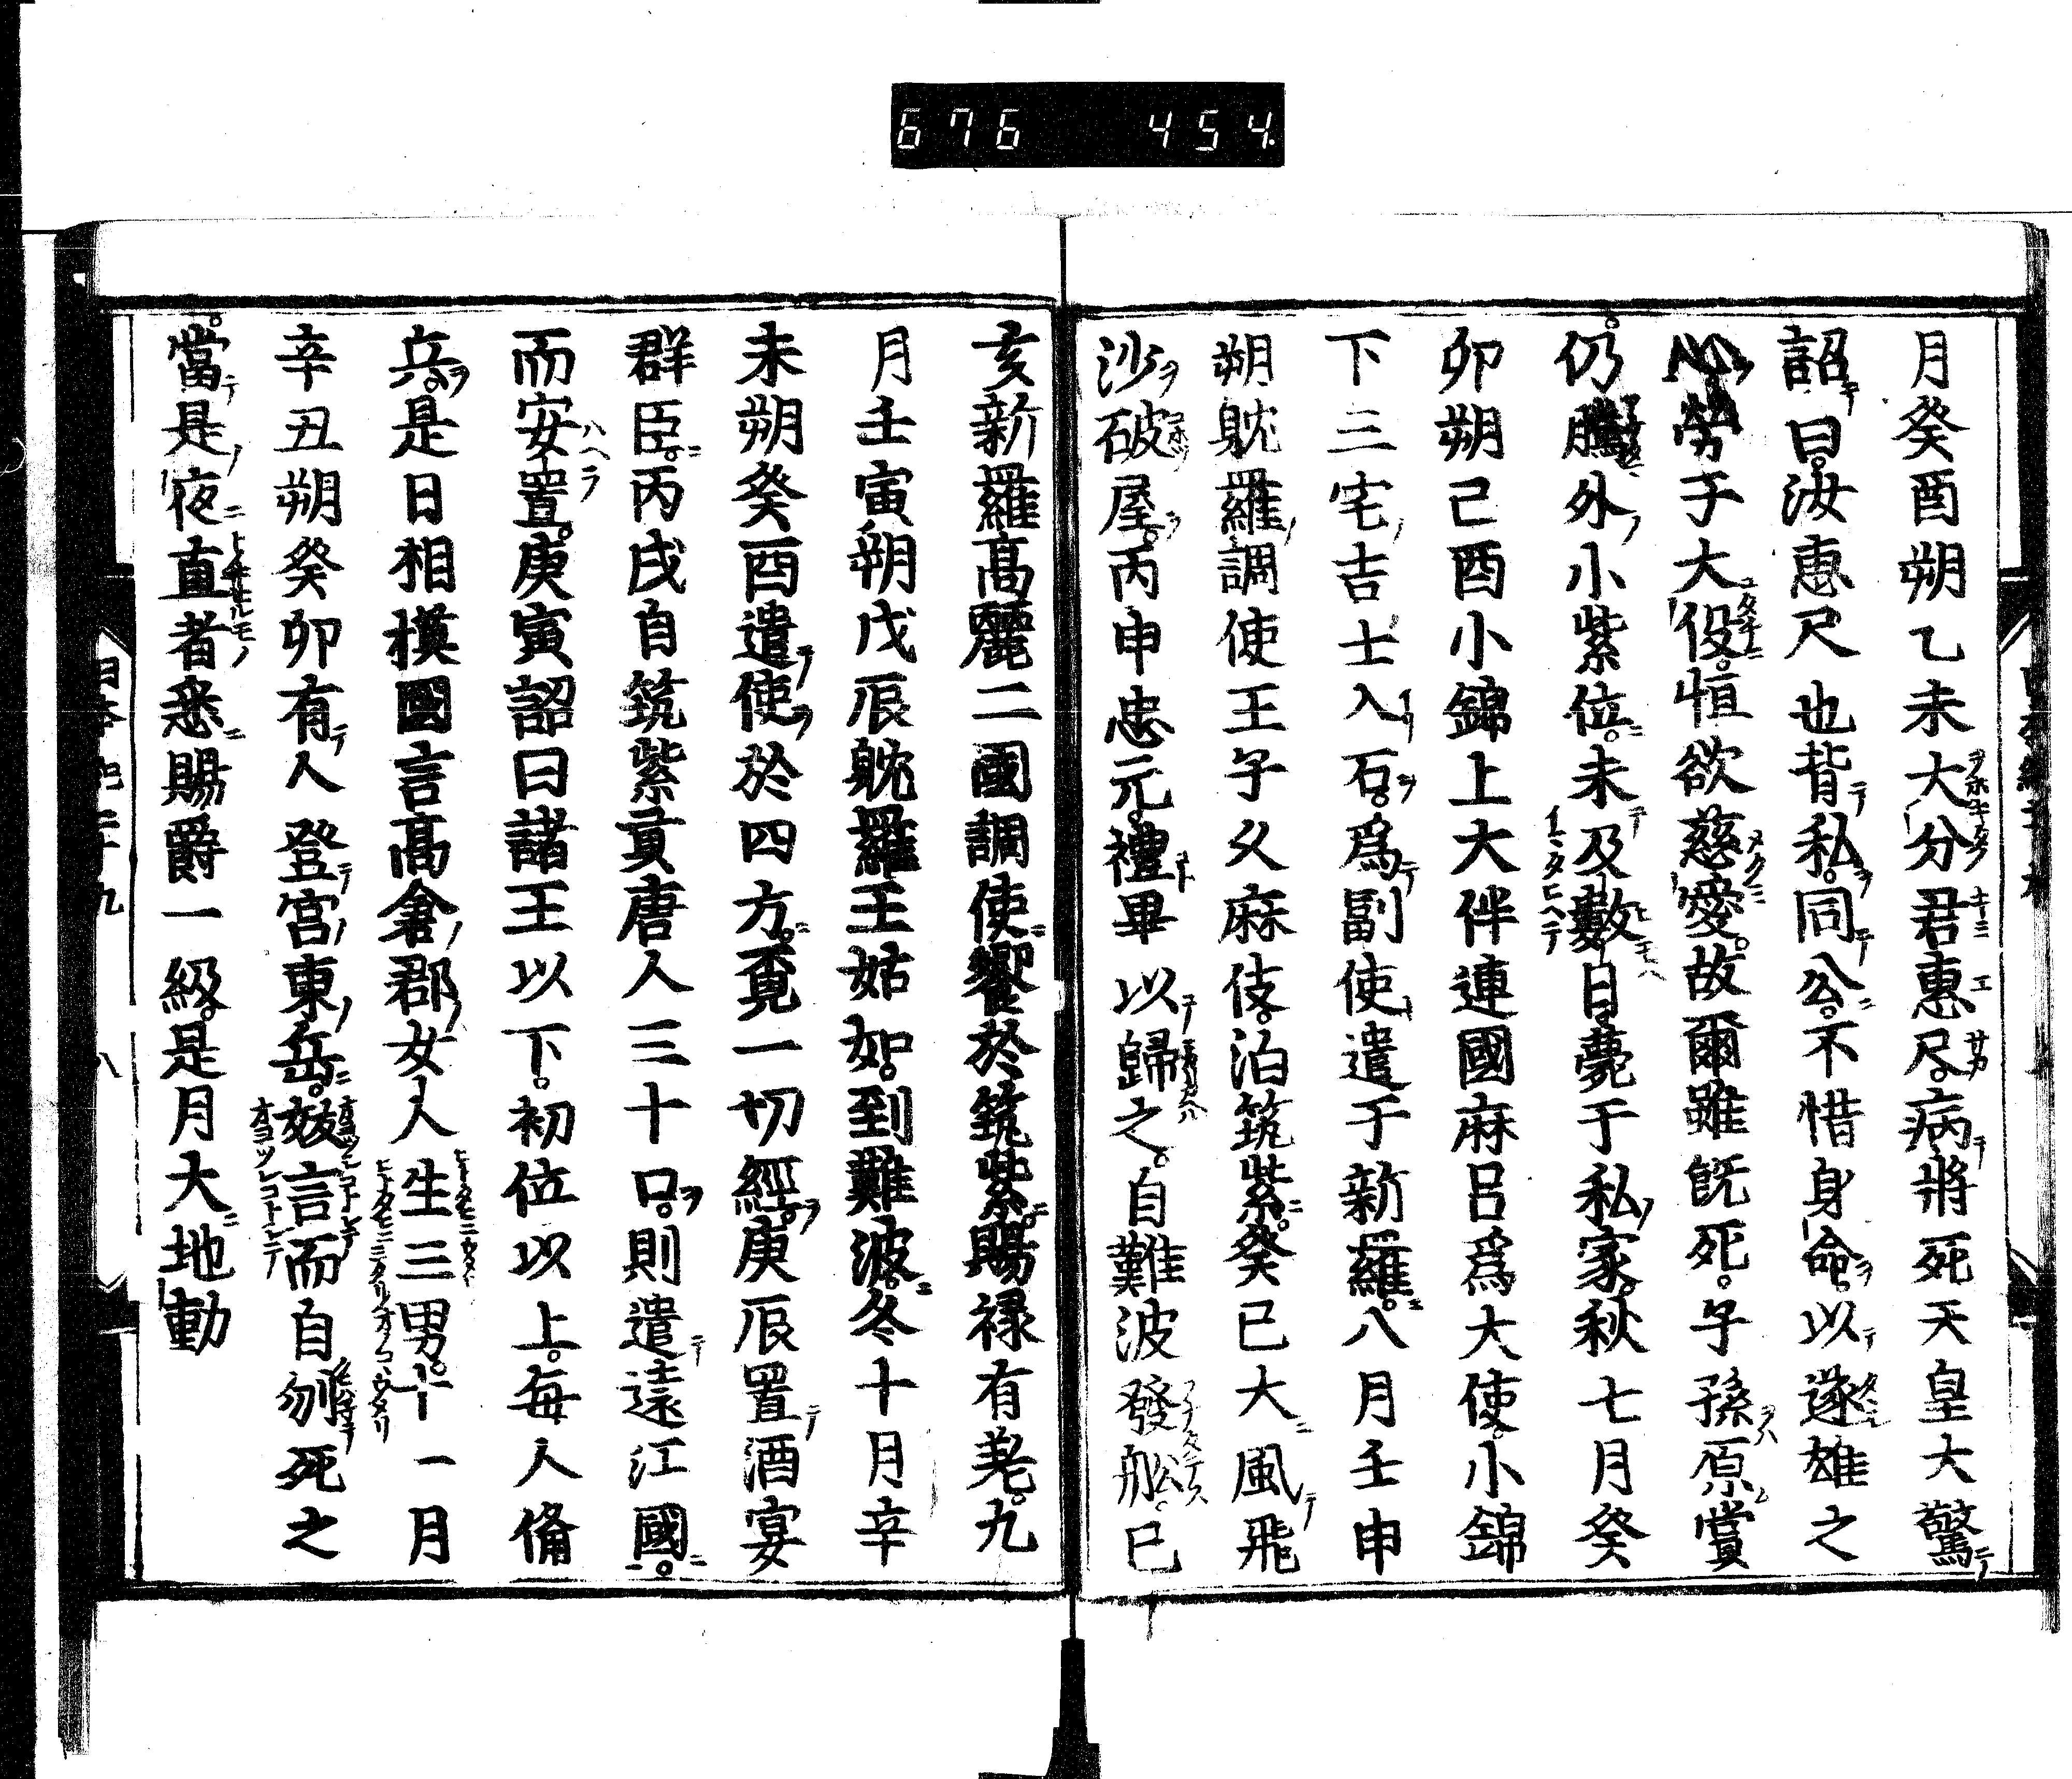 676 454
月癸酉朔乙未大分君惠尺病將死天皇大驚
詔曰汝惠尺也背私同公不惜身命以遂雄之
心勞于大役恒欲慈愛故爾雖既死子孫原賞
仍騰外小紫位未及數日薨于私家秋七月癸
卯朔己酉小錦上大伴連國麻呂爲大使小錦
下三宅吉士入石爲副使遣于新羅八月壬申
朔躭羅調使王子久麻伎泊筑紫癸巳大風飛
沙破屋丙申忠元禮畢以歸之自難波發舩已
亥新羅高麗二國調使饗於筑紫賜禄有差九
月壬寅朔戊辰躭羅王姑如到難波冬十月辛
未朔癸酉遣使於四方覓一切經庚辰置酒宴
群臣丙戌自筑紫貢唐人三十口則遣遠江國
而安置庚寅詔曰諸王以下初位以上每人備
兵是日相摸國言高倉郡女人生三男十一月
辛丑朔癸卯有人登宮東岳妖言而自刎死之
當是夜直者悉賜爵一級是月大地動
八